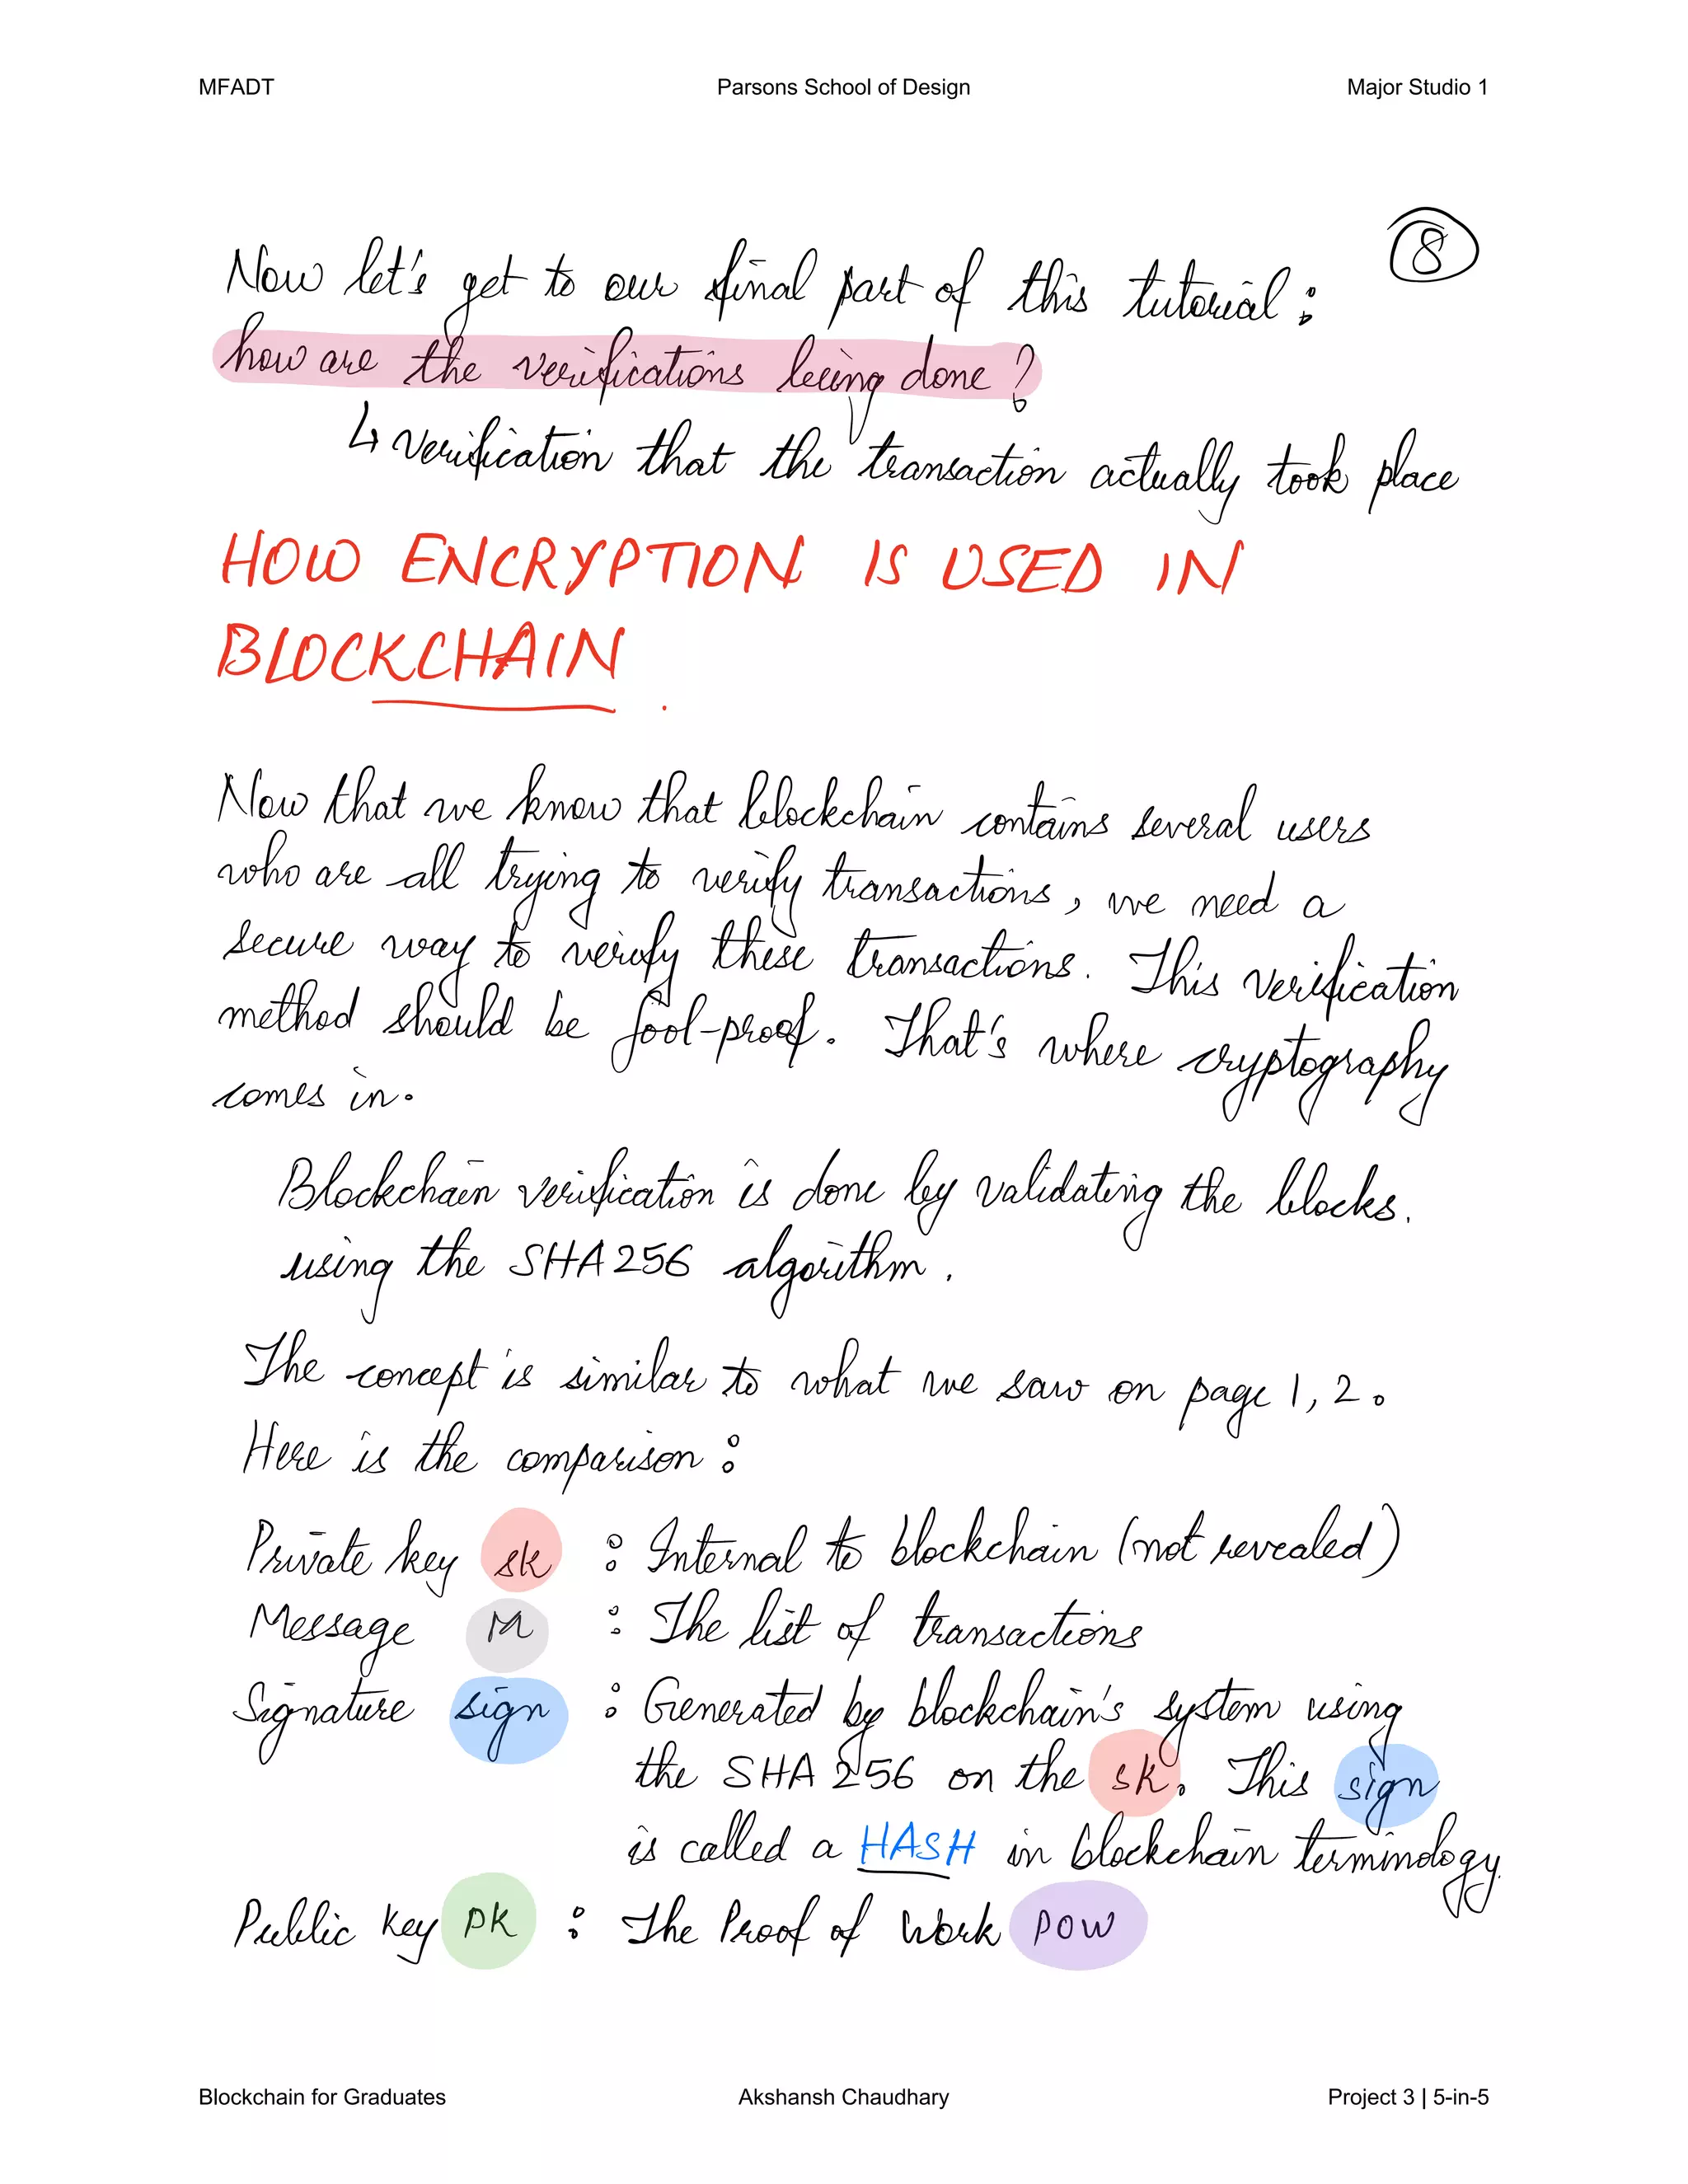 MFADT Parsons School of Design Major Studio 1
8
Now let's get to our final part of this tutorial:
how are the verifications being done?
↳ verification that the transaction actually took place
HOW ENCRYPTION IS USED IN
BLOCKCHAIN.
Now that we know that blockchain contains several users
who are all trying to verify transactions, we need a
secure way to verify these transactions. This verification
method should be fool-proof. That's where cryptography
comes in.
Blockchain verification is done by validating the blocks.
using the SHA256 algorithm.
The concept is similar to what we saw on page 1, 2.
Here is the comparison:
Private key sk : Internal to blockchain (not revealed)
Message M : The list of transactions
Signature sign : Generated by blockchain's system using
the SHA 256 on the sk. This sign
is called a HASH in blockchain terminology.
Public key PK : The Proof of Work POW
Blockchain for Graduates Akshansh Chaudhary Project 3 | 5-in-5